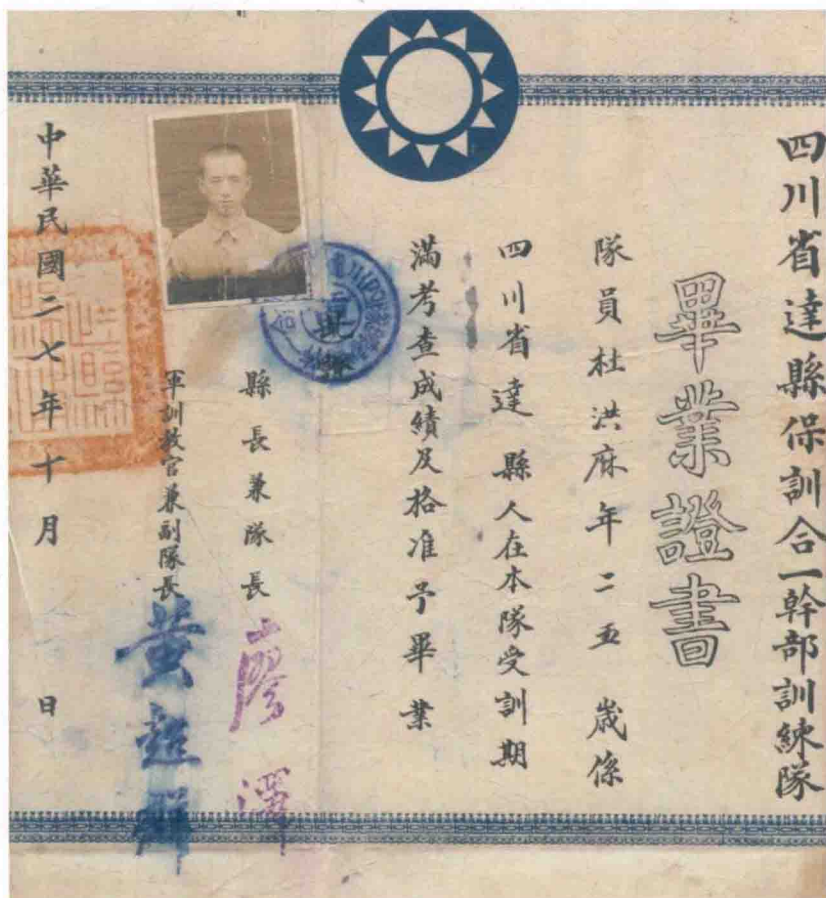 四川省達縣保訓合一幹部訓練隊
畢業證書
隊員杜洪麻年二五歲係
四川省達縣人在本隊受訓期
滿考查成績及格准予畢業
縣長兼隊長廖澤
軍訓教官兼副隊長黃超群
中華民國二七年十月 日